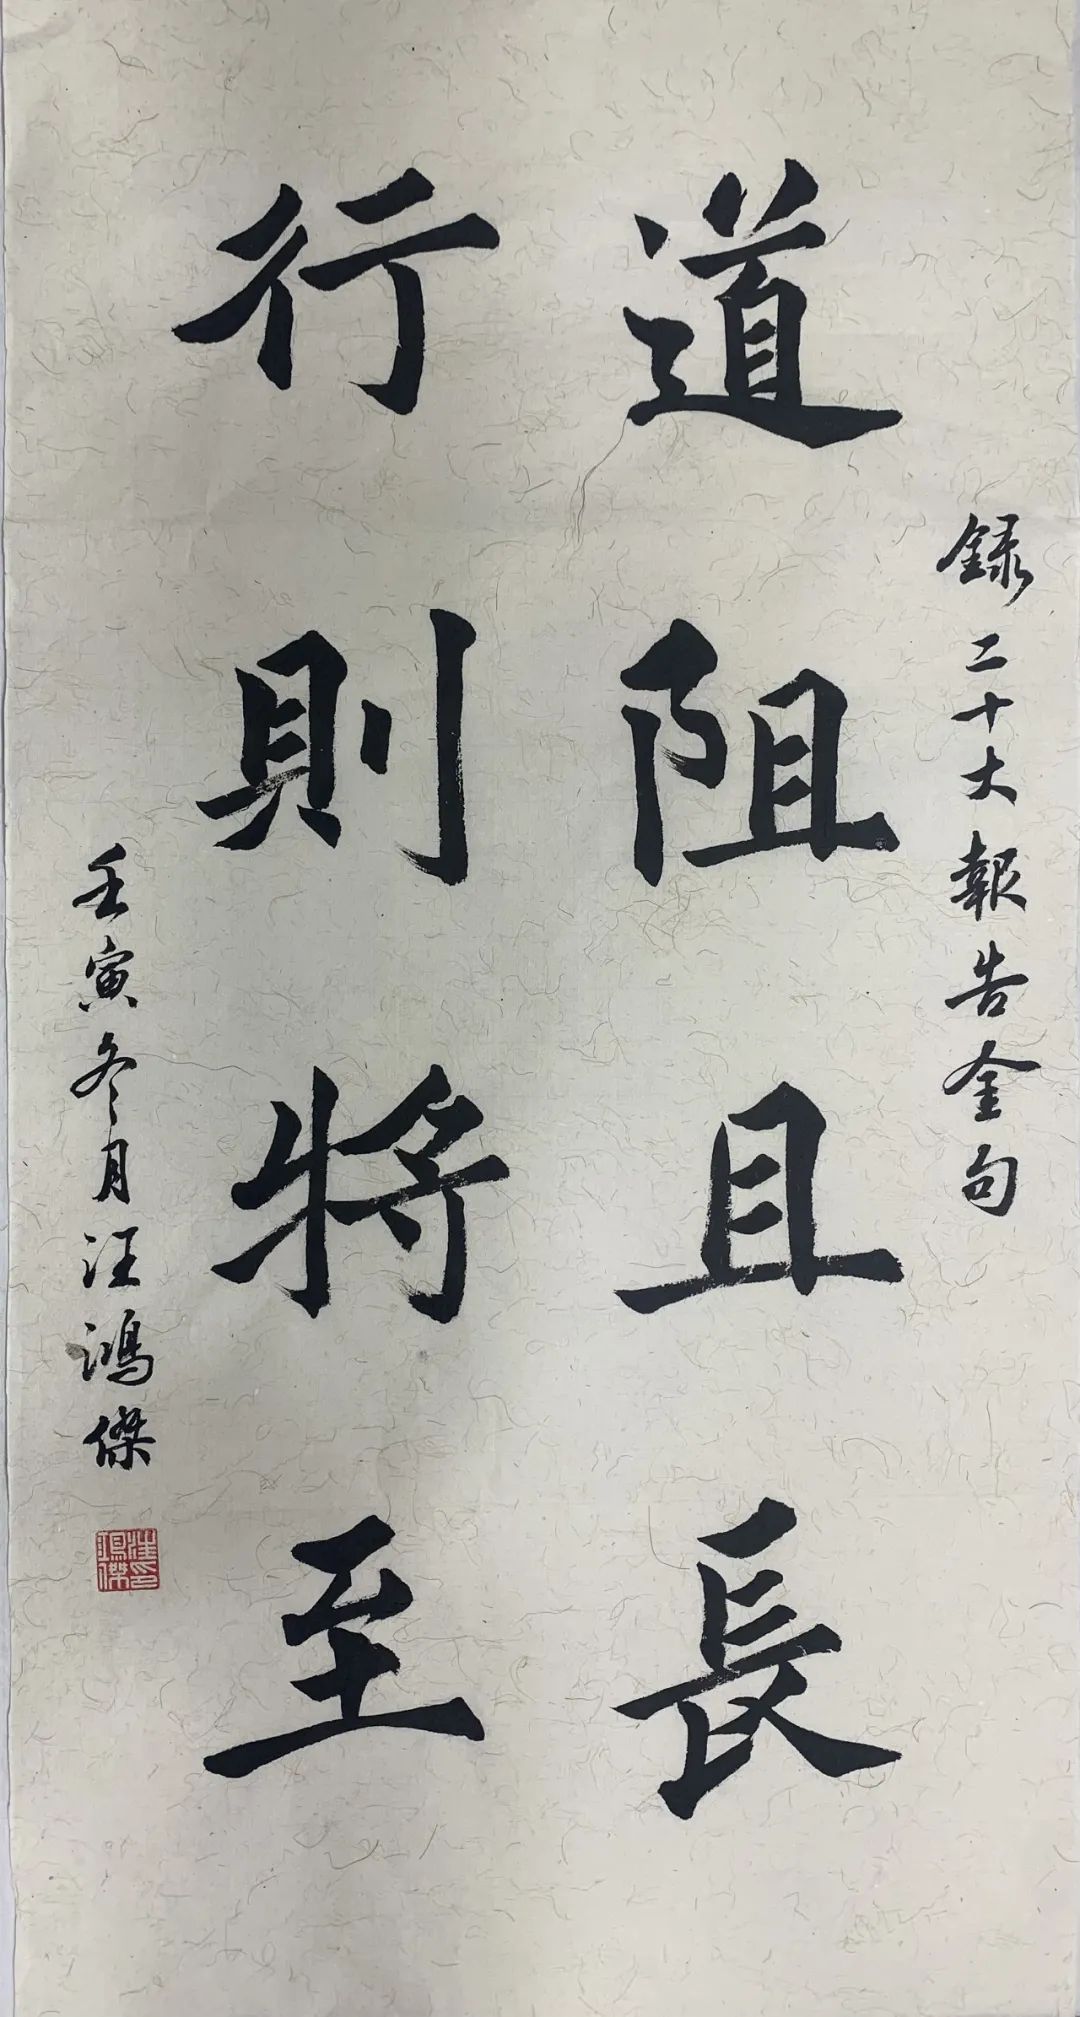 錄二十大報告金句
道阻且長
行則將至
壬寅冬月汪鴻傑
汪鴻傑印